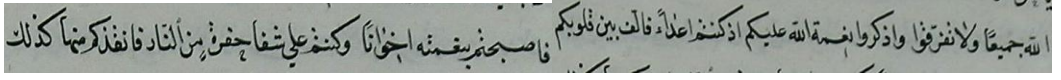 الله جميعا ولا تفرقوا واذكروا نعمة الله عليكم اذ كنتم اعداء فالف بين قلوبكم
فاصبحتم بنعمته اخوانا وكنتم علي شفا حفرة من النار فانقذكم منها كذلك